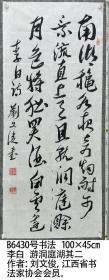 南湖秋水夜無煙耐
可乘流直上天且就洞
庭賒月色將船買酒白雲邊
李白詩 劉文俊書
B6430号书法 100×45cm
李白 游洞庭湖其二
作者: 刘文俊, 江西省书
法家协会会员.